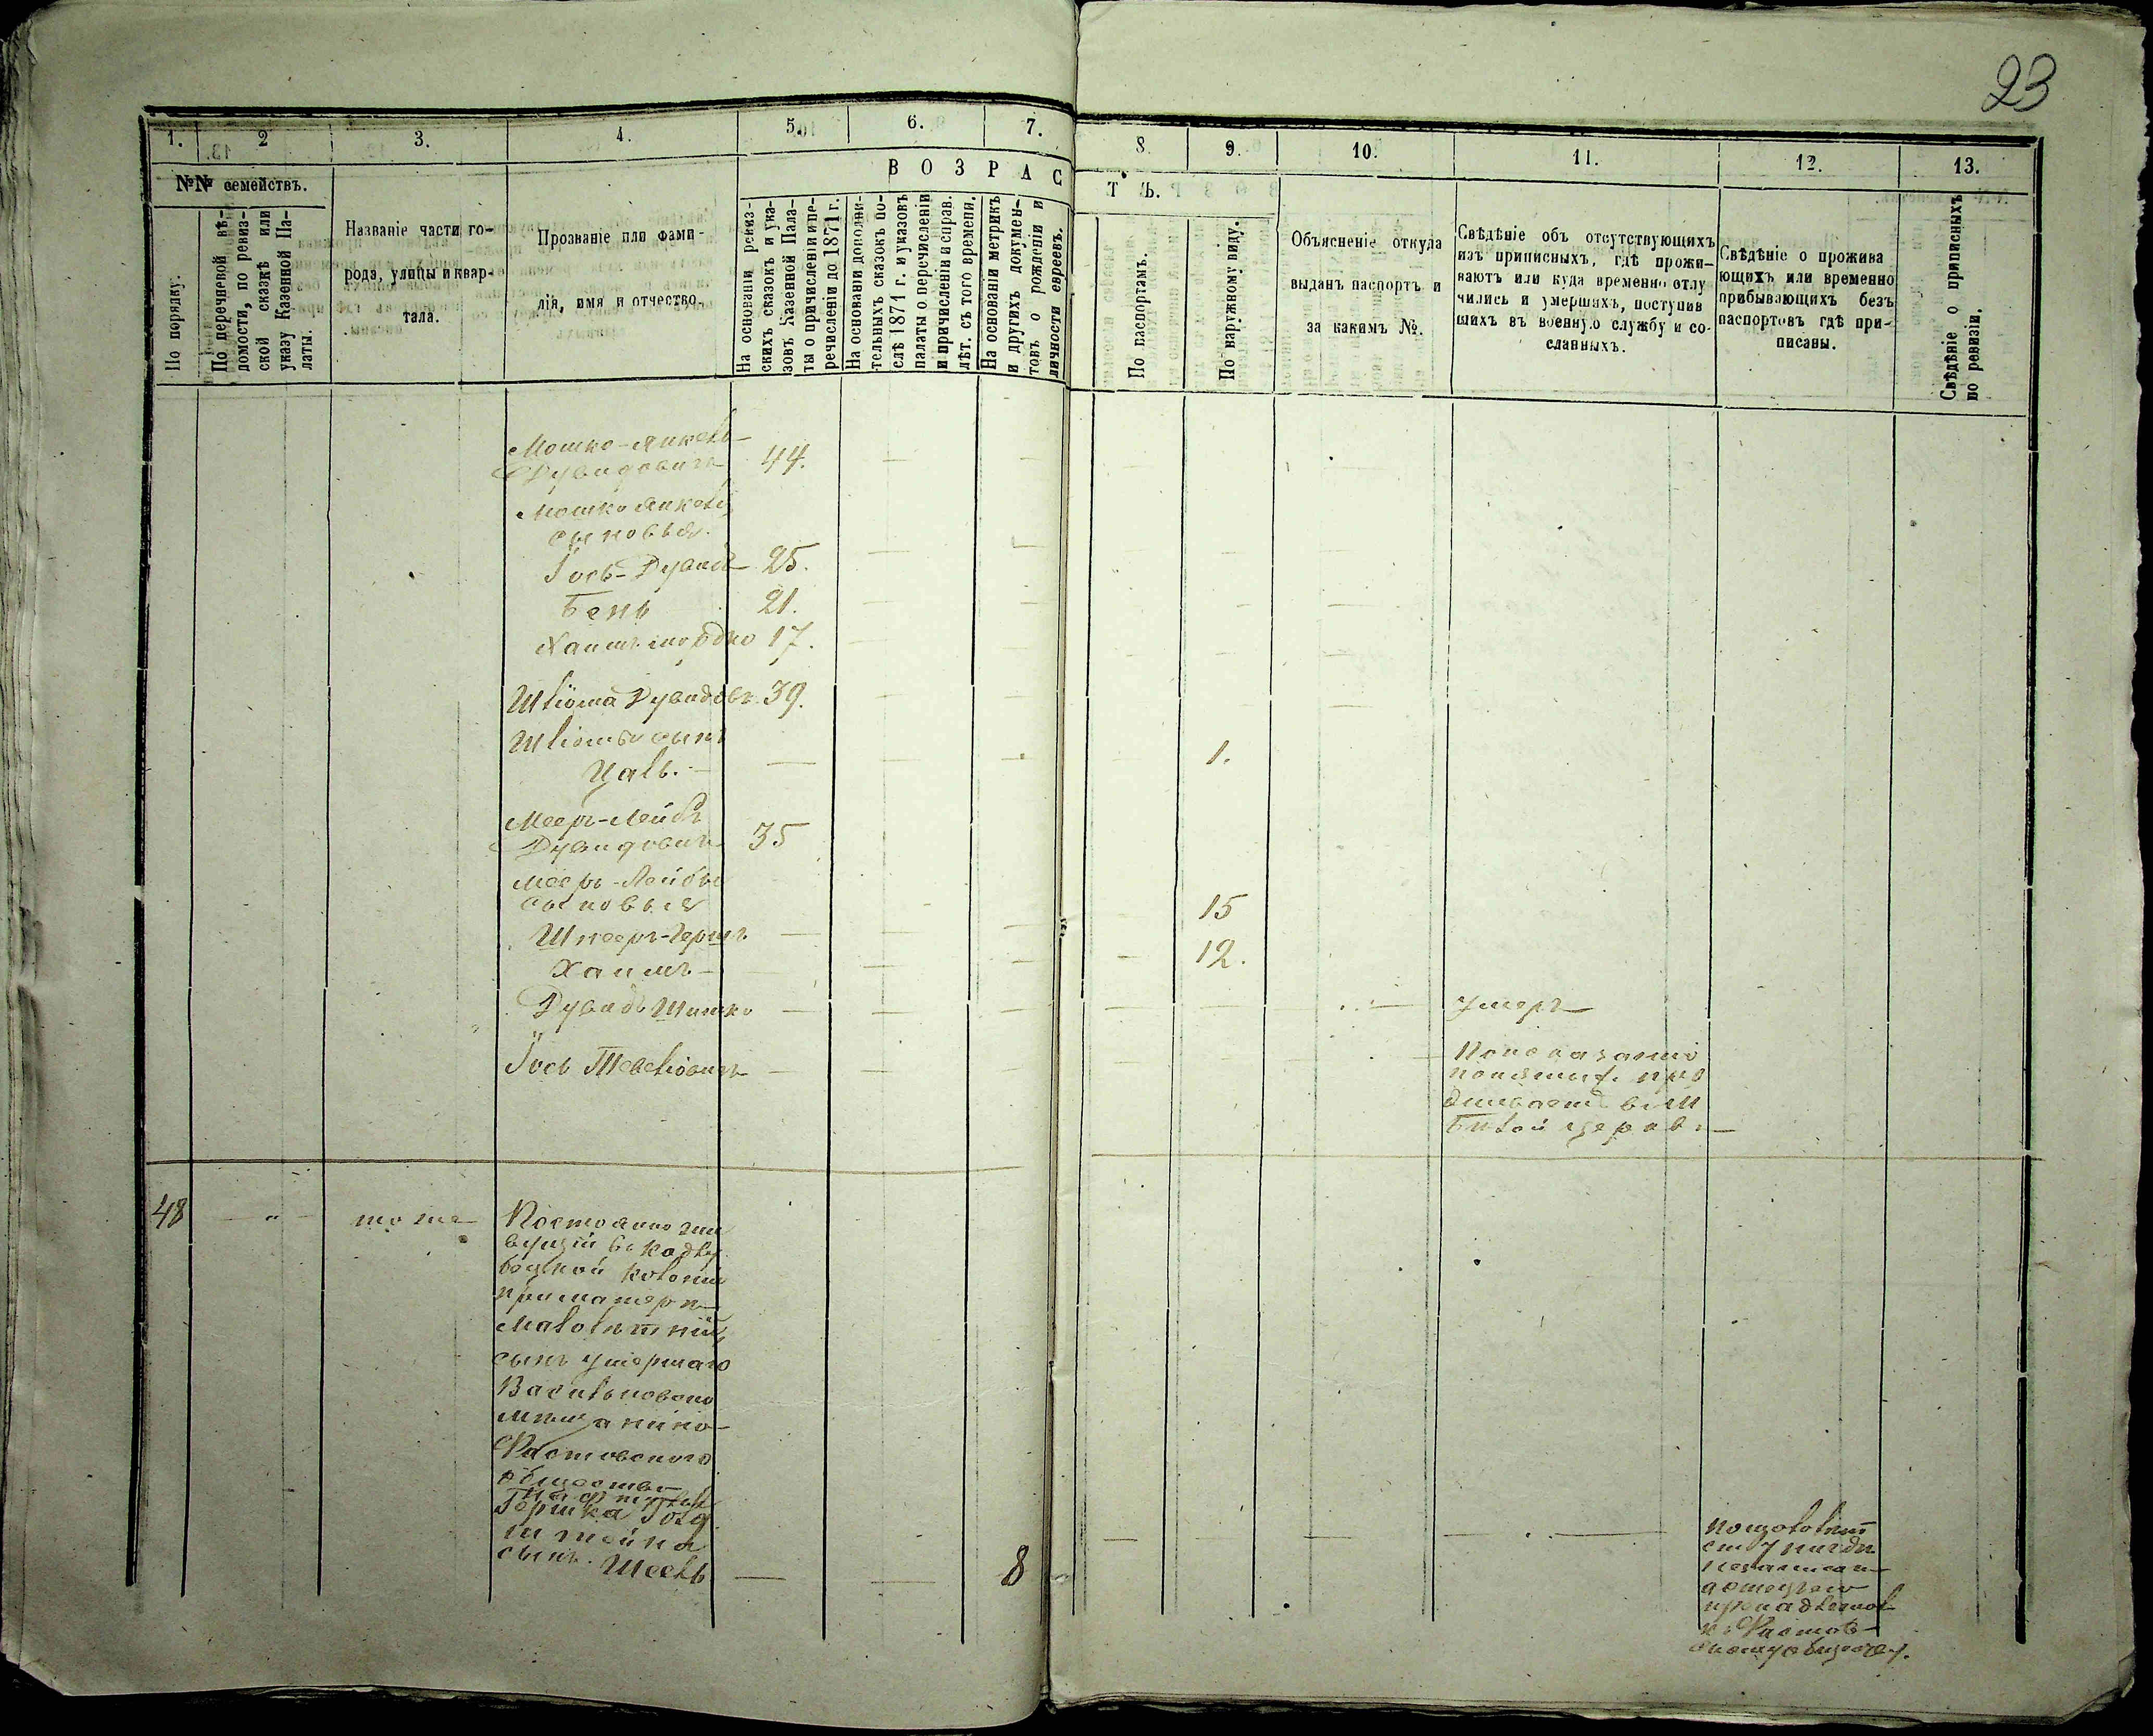 23
1. 2 3. 4. 5. 6. 7. 8. 9. 10. 11. 12. 13.
№№ семействъ.
По порядку.
По перечневой вѣ-
домости, по ревиз-
ской сказкѣ или
указу Казенной Па-
латы.
Названіе части го-
рода, улицы и квар-
тала.
Прозваніе или фами-
лія, имя и отчество.
ВОЗРАСТЪ.
На основаніи ревиз-
скихъ сказокъ и ука-
зовъ Казенной Пала-
ты о причисленіи и пе-
речисленіи до 1871 г.
На основаніи дополни-
тельныхъ сказокъ по-
слѣ 1871 г. и указовъ
палаты о перечисленіи
и причисленіи и справ.
лѣт. съ того времени.
На основаніи метрикъ
и другихъ докумен-
товъ о рожденіи и
личности евреевъ.
По паспортамъ.
По наружному виду.
Объясненіе откуда
выданъ паспортъ и
за какимъ №.
Свѣдѣніе объ отсутствующихъ
изъ приписныхъ, гдѣ прожи-
ваютъ или куда временно отлу
чились и умершихъ, поступив
шихъ въ военную службу и со-
сланныхъ.
Свѣдѣніе о прожива
ющихъ или временно
прибывающихъ безъ
паспортовъ гдѣ при-
писаны.
Свѣдѣніе о приписныхъ
по ревизіи.
Мошко-Янкель
Дувидовичъ 44.
Мошко Янкеля
сыновья.
Іось-Дувидъ 25.
Бень 21.
Хаимъ мордко 17.
Шлёма Дувидовъ 39.
Шлёмы сынъ
Цаль. 1.
Мееръ-Лейбъ
Дувидовичъ 35
Мееръ-Лейбы
сыновья
Шнееръ-Гершъ 15
Хаимъ 12.
Дувидъ Шимко умеръ
Іось Тевелёвичъ
По показанію
понятых. про
живаетъ в. м
Бѣлой церкви
48 " тоже
Постоянно жи
вущій въ Кадлу
бецкой колоніи
при матери
Малолѣтній
сынъ умершаго
Васильковско
мѣщанина
Фастовского
общества
Гершка Гол
штейна
сынъ. Шеель 8
къ Фастов
скому общест.